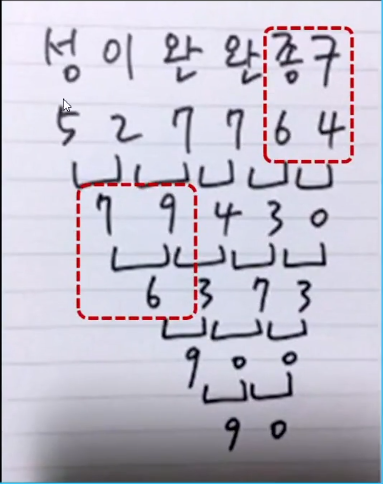 성 이 완 완 종 구
5 2 7 7 6 4
7 9 4 3 0
6 3 7 3
9 0 0
9 0